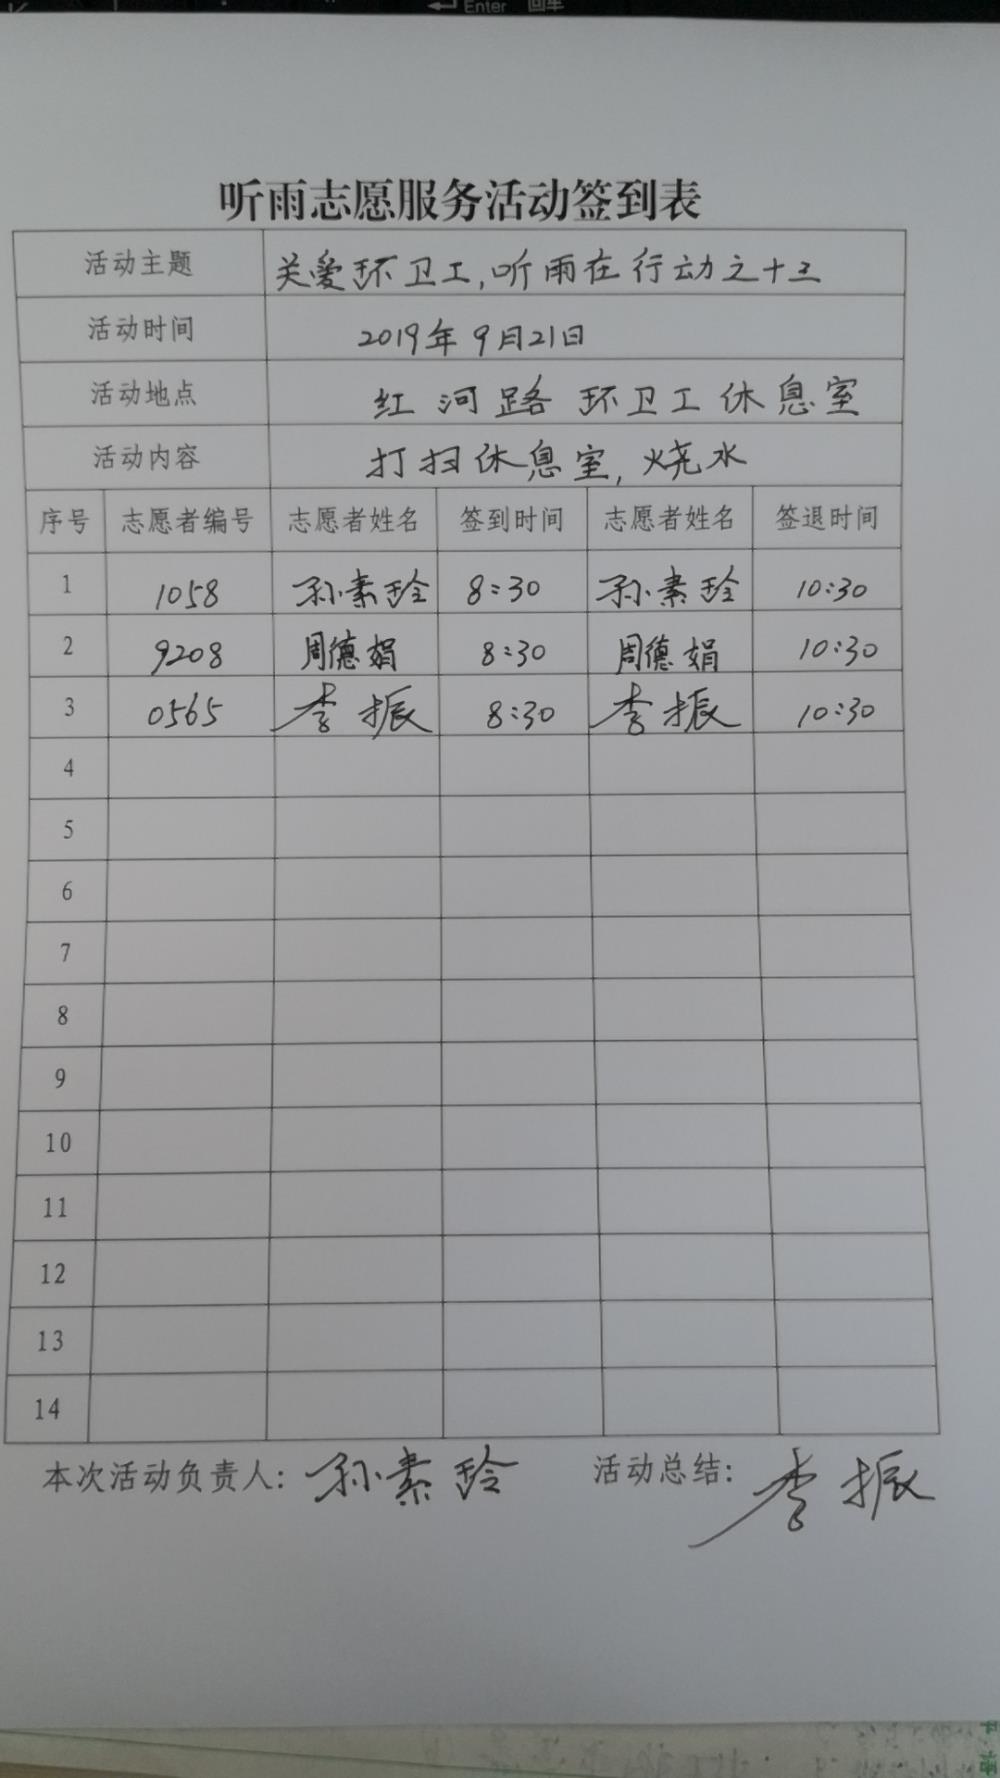 Enter 回车
听雨志愿服务活动签到表
活动主题 关爱环卫工,听雨在行动之十三
活动时间 2019年9月21日
活动地点 红河路 环卫工休息室
活动内容 打扫休息室,烧水
序号 志愿者编号 志愿者姓名 签到时间 志愿者姓名 签退时间
1 1058 孙素玲 8:30 孙素玲 10:30
2 9208 周德娟 8:30 周德娟 10:30
3 0565 李振 8:30 李振 10:30
4
5
6
7
8
9
10
11
12
13
14
本次活动负责人: 孙素玲 活动总结: 李振